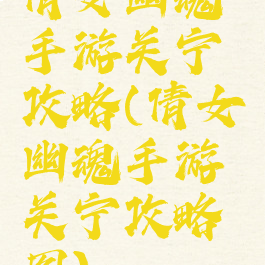 倩女幽魂
手游关宁
攻略(倩女
幽魂手游
关宁攻略
图)